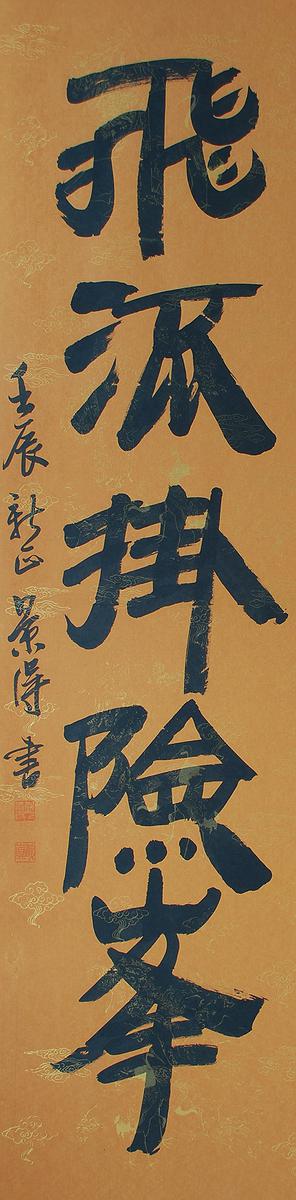 飛泒掛險峯
壬辰新正景得書